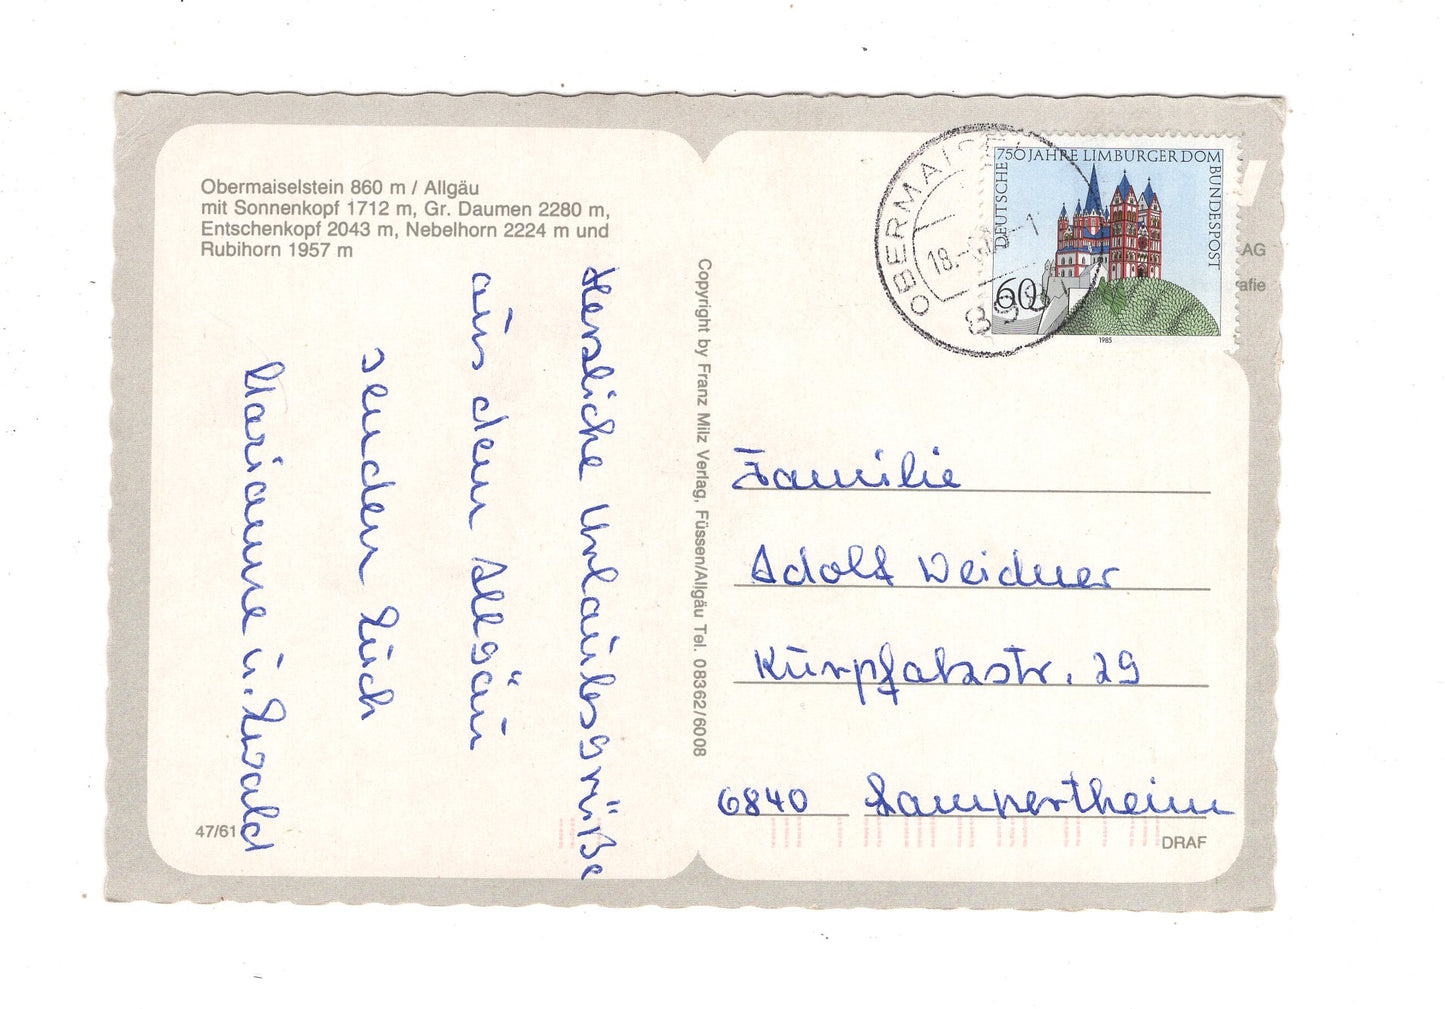 Obermaiselstein 860 m / Allgäu
mit Sonnenkopf 1712 m, Gr. Daumen 2280 m,
Entschenkopf 2043 m, Nebelhorn 2224 m und
Rubihorn 1957 m
Herzliche Urlaubsgrüße
aus dem Allgäu
senden Euch
Marianne u. Ewald
47/61
Copyright by Franz Milz Verlag, Füssen/Allgäu Tel. 08362/6008
OBERMAISEL
18.
750 JAHRE LIMBURGER DOM
DEUTSCHE
BUNDESPOST
60
1985
AG
afie
Familie
Adolf Weidner
Kurpfalzstr. 29
6840 Lampertheim
DRAF